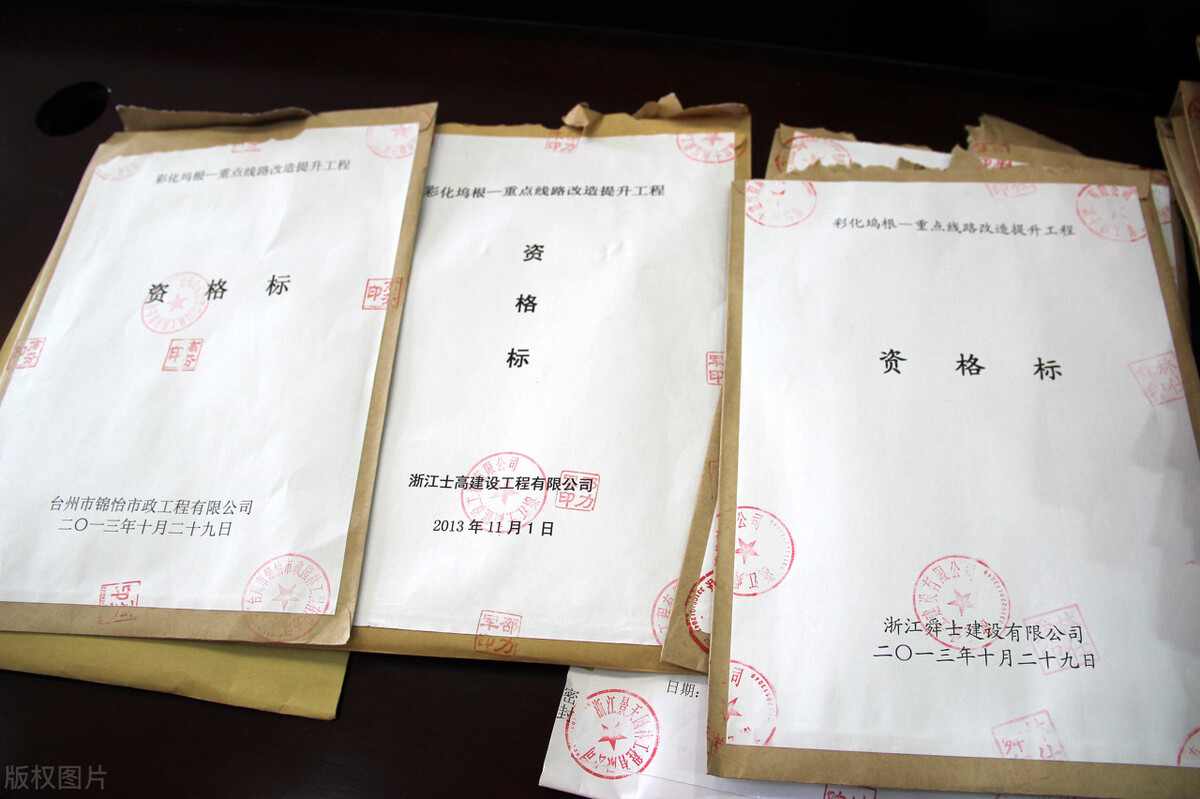 彩化坞根—重点线路改造提升工程
资格标
台州市锦怡市政工程有限公司
二〇一三年十月二十九日
彩化坞根—重点线路改造提升工程
资
格
标
浙江士高建设工程有限公司
2013年11月1日
彩化坞根—重点线路改造提升工程
资格标
浙江舜士建设有限公司
二〇一三年十月二十九日
密
封
日期:
浙江景天园林工程有限公司
版权图片